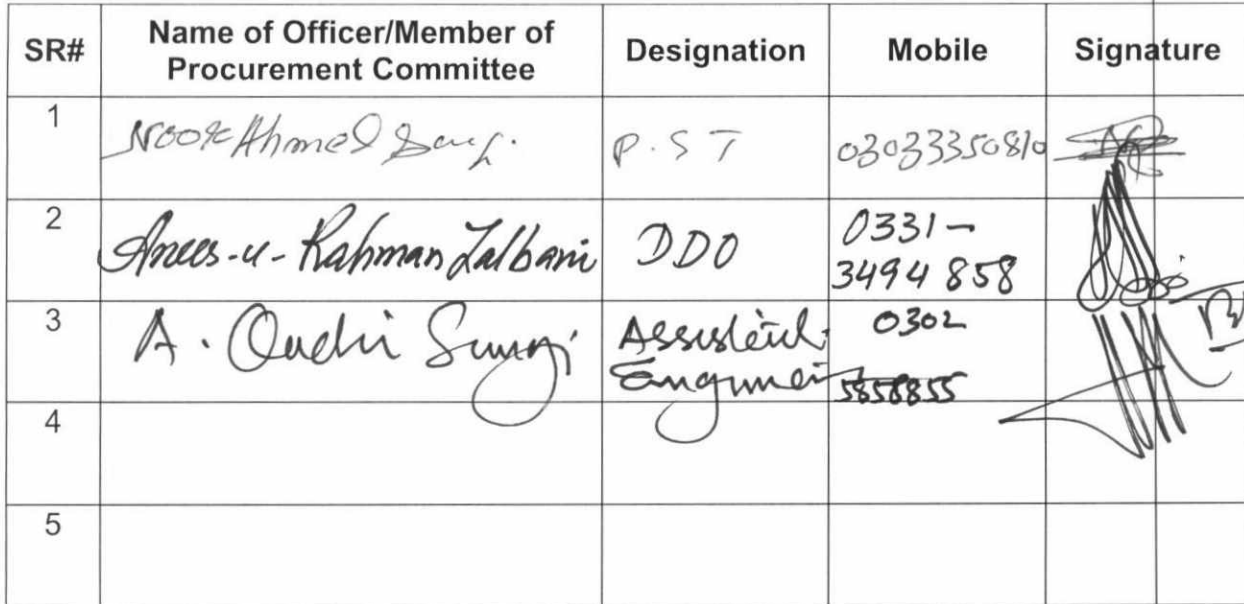 SR# Name of Officer/Member of Procurement Committee Designation Mobile Signature
1 Noor Ahmed P.S T 03033350810
2 Anees-u-Rahman Lalbani DDO 0331-
3494858
3 A. Qadir Sungi Assistant 0302
Engineer 5858855
4
5